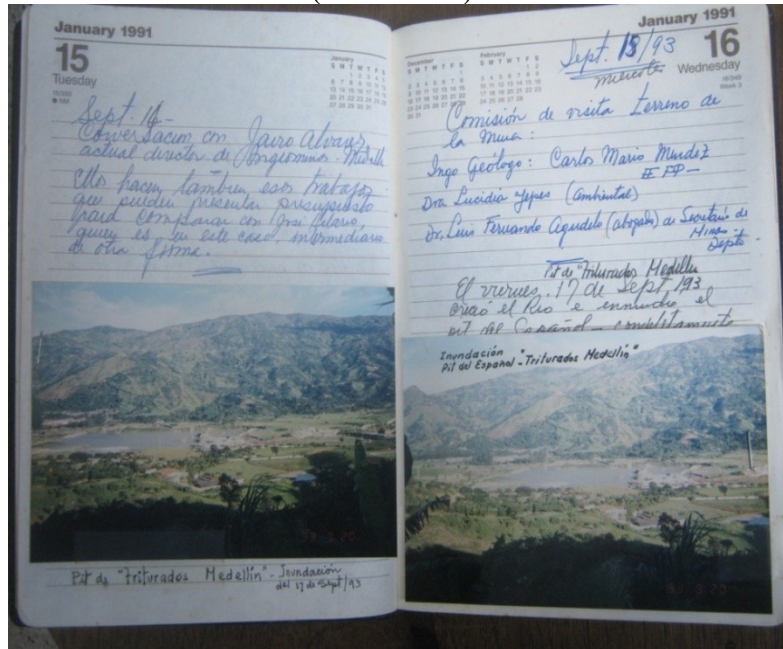 January 1991
15
Tuesday
January
S M T W T F S
Sept. 16 -
Conversacion con Jairo Alvarez,
actual director de Ingeominas - Medellín
Ellos hacen tambien esos trabajos
que pueden presentar presupuesto
para comparar con José Hilario,
quien es, en este caso, intermediario
de otra forma.
93.9.20
Pit de "Triturados Medellín" - Inundación
del 17 de Sept/93
January 1991
16
Wednesday
Week 3
December
February
S M T W T F S
S M T W T F S
Sept. 15/93
miercoles
Comisión de visita terreno de
la Mina:
Ingo Geólogo: Carlos Mario Mendez
EE PP -
Dra Lucidia Yepes (ambiental)
Dr. Luis Fernando Agudelo (abogado) de Secretaría de
Minas -
Depto.
Pit de "Triturados Medellín
El viernes. 17 de Sept/93
creció el Rio e inundó el
pit del Español - completamente
Inundación
Pit del Español - "Triturados Medellín"
93.9.20